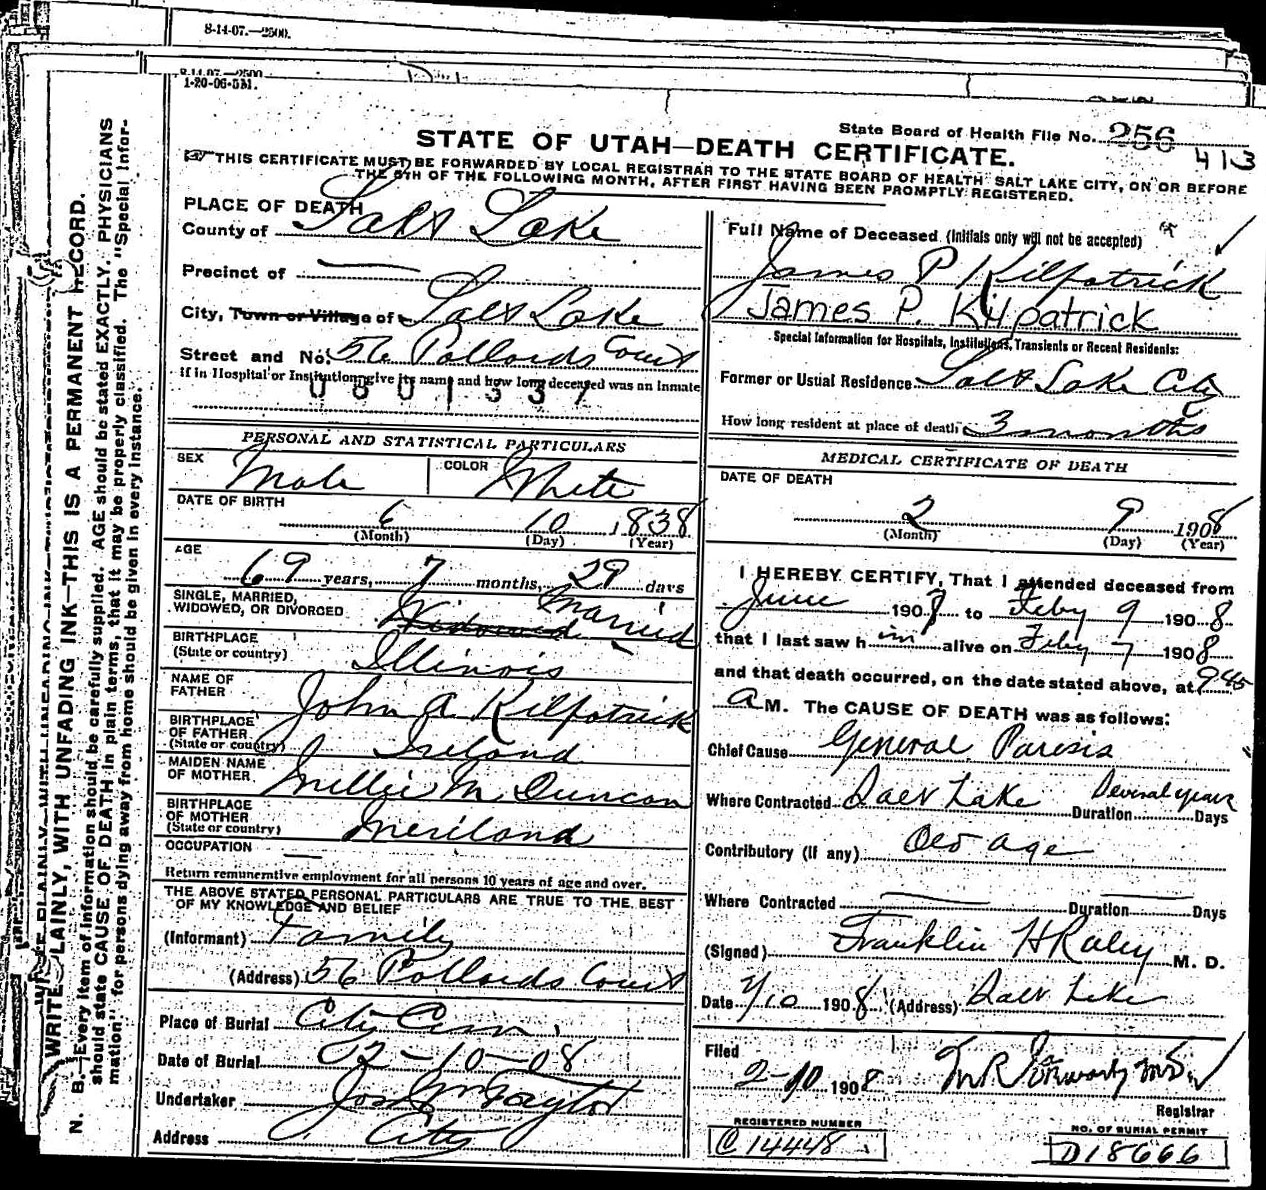 8-14-07.—2500.
8-14-07.—2500
1-20-06-5M.
State Board of Health File No. 256
413
STATE OF UTAH—DEATH CERTIFICATE.
THIS CERTIFICATE MUST BE FORWARDED BY LOCAL REGISTRAR TO THE STATE BOARD OF HEALTH SALT LAKE CITY, ON OR BEFORE
THE 5TH OF THE FOLLOWING MONTH, AFTER FIRST HAVING BEEN PROMPTLY REGISTERED.
WRITE PLAINLY, WITH UNFADING INK—THIS IS A PERMANENT RECORD.
N. B.—Every item of information should be carefully supplied. AGE should be stated EXACTLY. PHYSICIANS
should state CAUSE OF DEATH in plain terms, that it may be properly classified. The "Special Infor-
mation" for persons dying away from home should be given in every instance.
PLACE OF DEATH
County of Salt Lake
Precinct of
City, Town or Village of Salt Lake
Street and No. 56 Pollards Court
if in Hospital or Institution give its name and how long deceased was an Inmate
0601337
PERSONAL AND STATISTICAL PARTICULARS
SEX Male COLOR White
DATE OF BIRTH
6 10 1838
(Month) (Day) (Year)
AGE
69 years, 7 months, 29 days
SINGLE, MARRIED,
WIDOWED, OR DIVORCED Widowed Married
BIRTHPLACE
(State or country) Illinois
NAME OF
FATHER John A Kilpatrick
BIRTHPLACE
OF FATHER
(State or country) Ireland
MAIDEN NAME
OF MOTHER Millie M Duncan
BIRTHPLACE
OF MOTHER
(State or country) Meriland
OCCUPATION
Return remunerative employment for all persons 10 years of age and over.
THE ABOVE STATED PERSONAL PARTICULARS ARE TRUE TO THE BEST
OF MY KNOWLEDGE AND BELIEF
(Informant) Family
(Address) 56 Pollards Court
Place of Burial City Cem.
Date of Burial 02-10-08
Undertaker Jos. Wm Taylor
Address City
Full Name of Deceased (Initials only will not be accepted)
James P Kilpatrick
James P. Kilpatrick
Special Information for Hospitals, Institutions, Transients or Recent Residents:
Former or Usual Residence Salt Lake City
How long resident at place of death 3 months
MEDICAL CERTIFICATE OF DEATH
DATE OF DEATH
2 9 1908
(Month) (Day) (Year)
I HEREBY CERTIFY, That I attended deceased from
June 1907 to Feby 9 1908
that I last saw him alive on Feby 7 1908
and that death occurred, on the date stated above, at 9 45
A M. The CAUSE OF DEATH was as follows:
Chief Cause General Paresis
Where Contracted Salt Lake Duration Several years Days
Contributory (if any) Old age
Where Contracted Duration Days
(Signed) Franklin H Raley M. D.
Date 2/10 1908 (Address) Salt Lake
Filed
2-10 1908
Registrar
REGISTERED NUMBER
C 14448
NO. OF BURIAL PERMIT
D18666